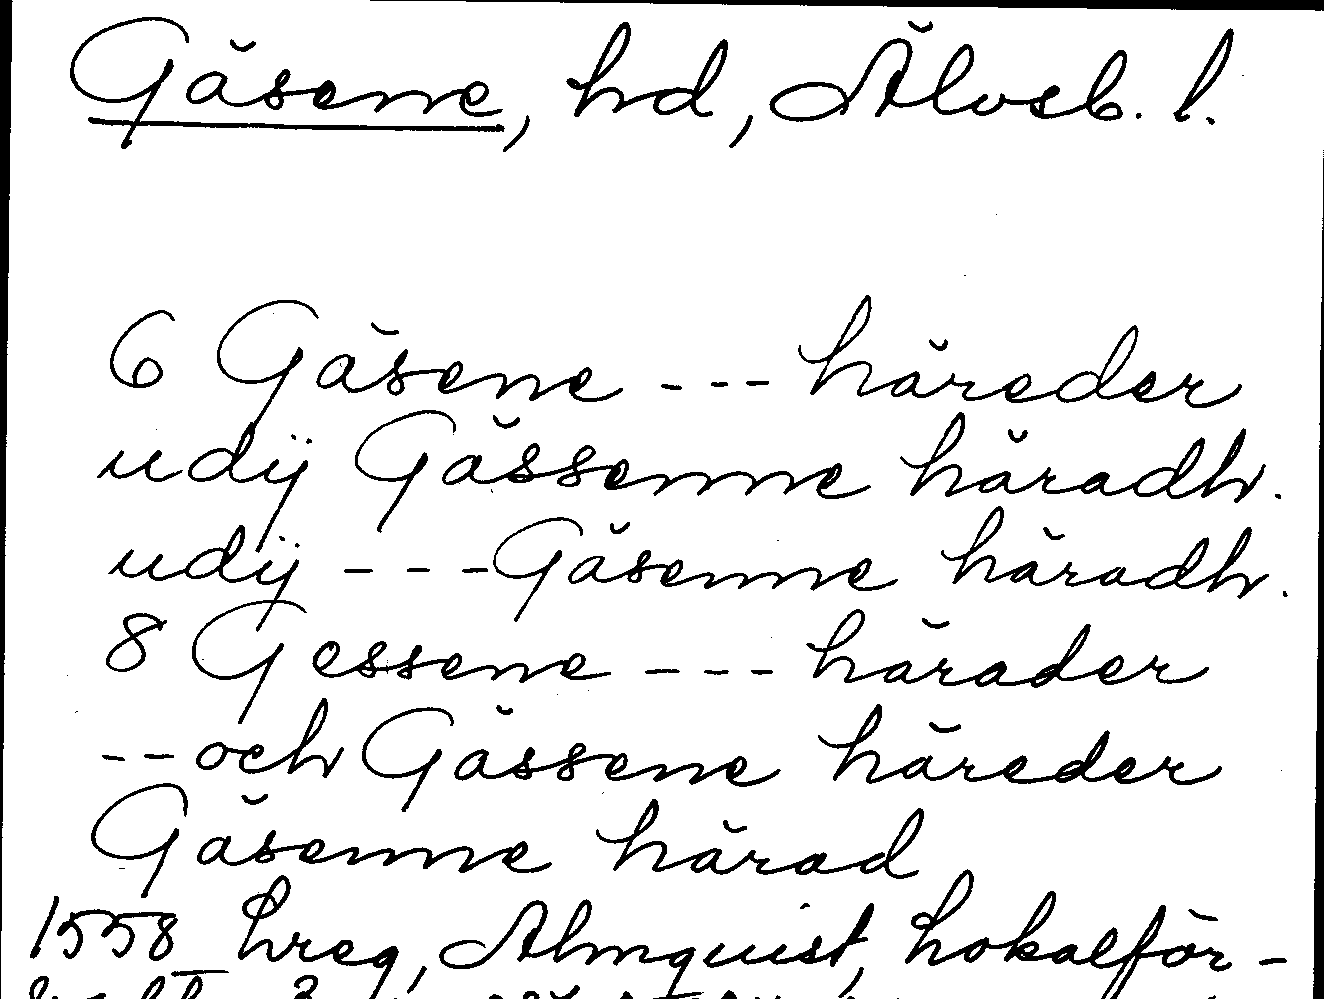 Gäsene, hd, Älvsb. l.
6 Gäsene --- häreder
udij Gässenne häradh.
udij --- Gäsenne häradh.
8 Gessene --- härader
-- och Gässene häreder
Gäsenne härad
1558 hreg, Almquist, Lokalför-